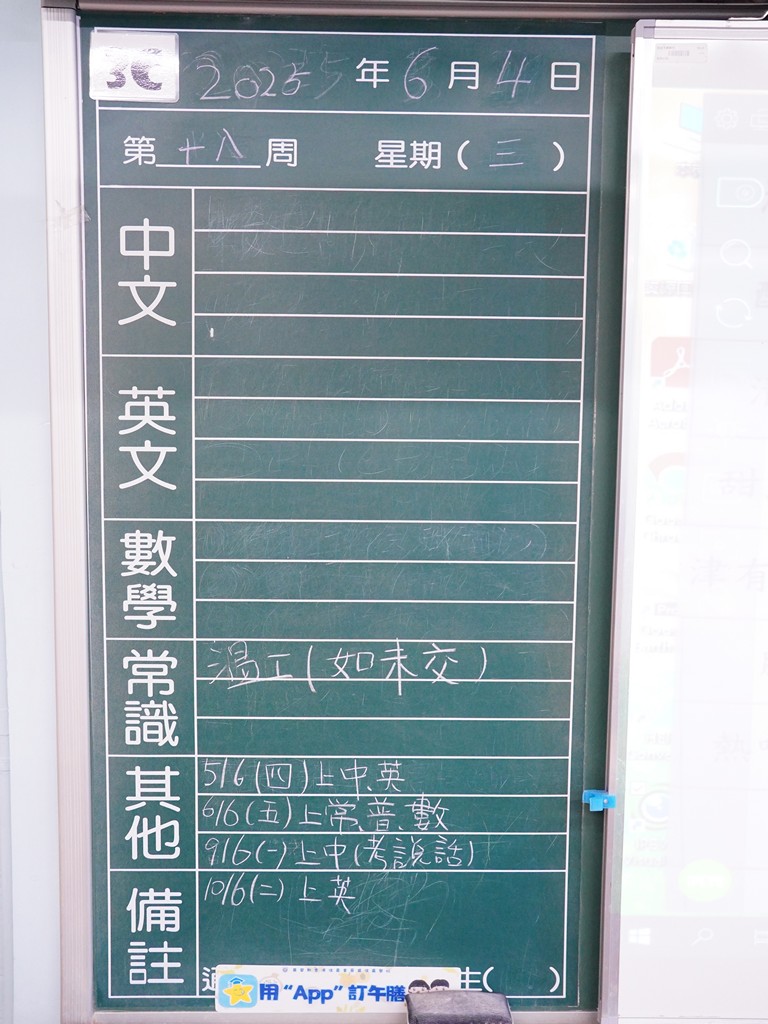 3C 2025年6月4日
第十八周 星期(三)
中文
英文
數學
常識 溫工(如未交)
其他 5/6(四)上中、英
6/6(五)上常、普、數
9/6(一)上中(考說話)
備註 10/6(二)上英
用“App”訂午膳
生( )